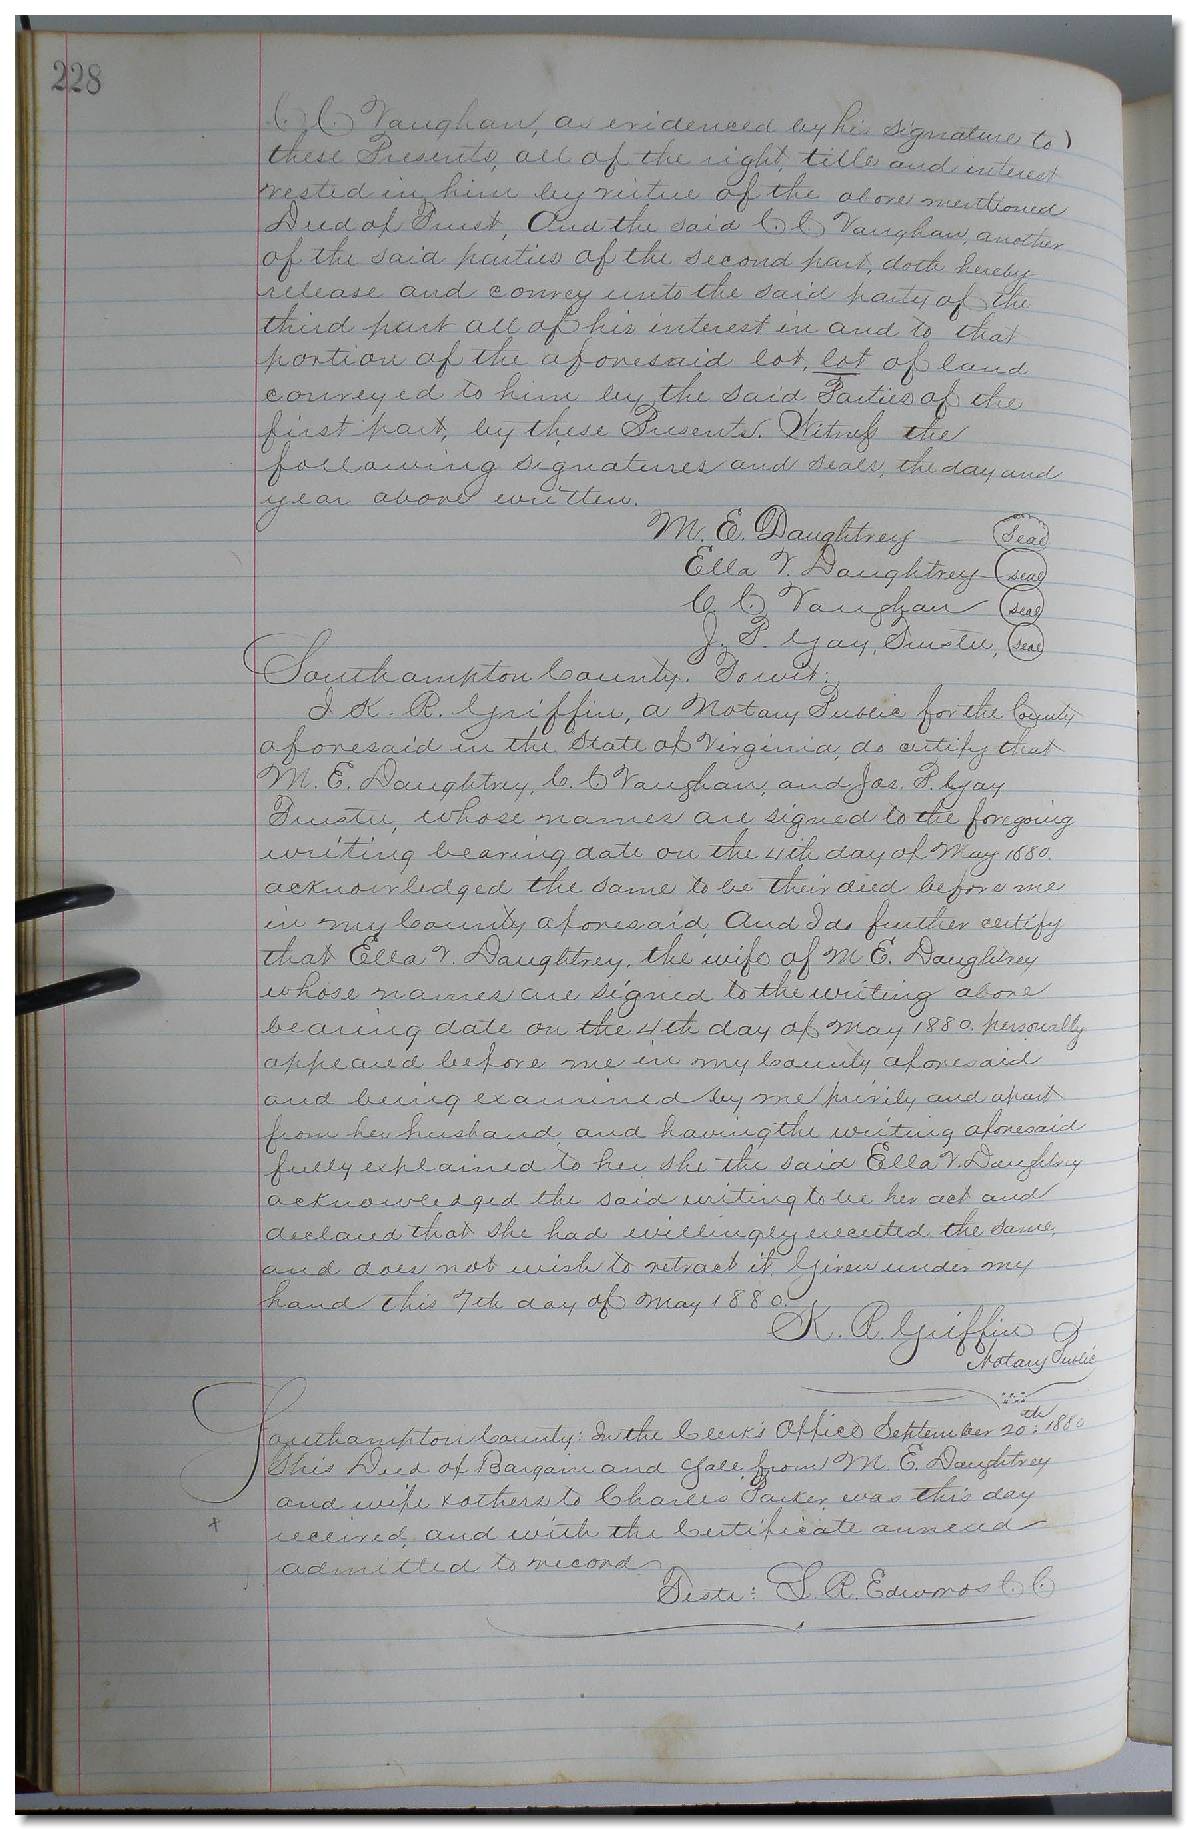 228
C. C. Vaughan, as evidenced by his signature to
these Presents, all of the right, title and interest
vested in him by virtue of the above mentioned
Deed of Trust, And the said C. C. Vaughan, another
of the said parties of the second part, doth hereby
release and convey unto the said party of the
third part all of his interest in and to that
portion of the aforesaid lot, lot of land
conveyed to him by the said Parties of the
first part, by these Presents. Witness the
following signatures and seals, the day and
year above written.
M. E. Daughtrey — Seal
Ella V. Daughtrey — seal
C. C. Vaughan seal
J. P. Gay, Trustee, seal
Southampton County. To wit:
I K. R. Griffin, a Notary Public for the County
aforesaid in the State of Virginia, do certify that
M. E. Daughtrey, C. C. Vaughan, and Jos. P. Gay
Trustee, whose names are signed to the foregoing
writing bearing date on the 4th day of May 1880.
acknowledged the same to be their deed before me
in my County aforesaid, And I do further certify
that Ella V. Daughtrey, the wife of M. E. Daughtrey
whose names are signed to the writing above
bearing date on the 4th day of May 1880. personally
appeared before me in my County aforesaid
and being examined by me privily and apart
from her husband, and having the writing aforesaid
fully explained to her, she the said Ella V. Daughtrey
acknowledged the said writing to be her act and
declared that she had willingly executed the same,
and does not wish to retract it. Given under my
hand this 7th day of May 1880.
K. R. Griffin
Notary Public
Southampton County: In the Clerk's Office September 20th: 1880
This Deed of Bargain and Sale from M. E. Daughtrey
and wife & others to Charles Parker was this day
received, and with the Certificate annexed
admitted to record
Teste: L. R. Edwards C. C.